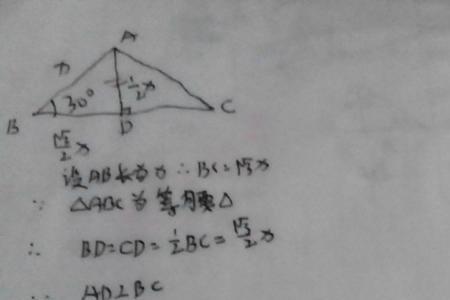 A
x
30°
½x
B
D
C
√3/2 x
设AB长为x ∴BC=√3x
∵ △ABC为等腰△
∴ BD=CD=½BC=√3/2 x
∴ AD⊥BC